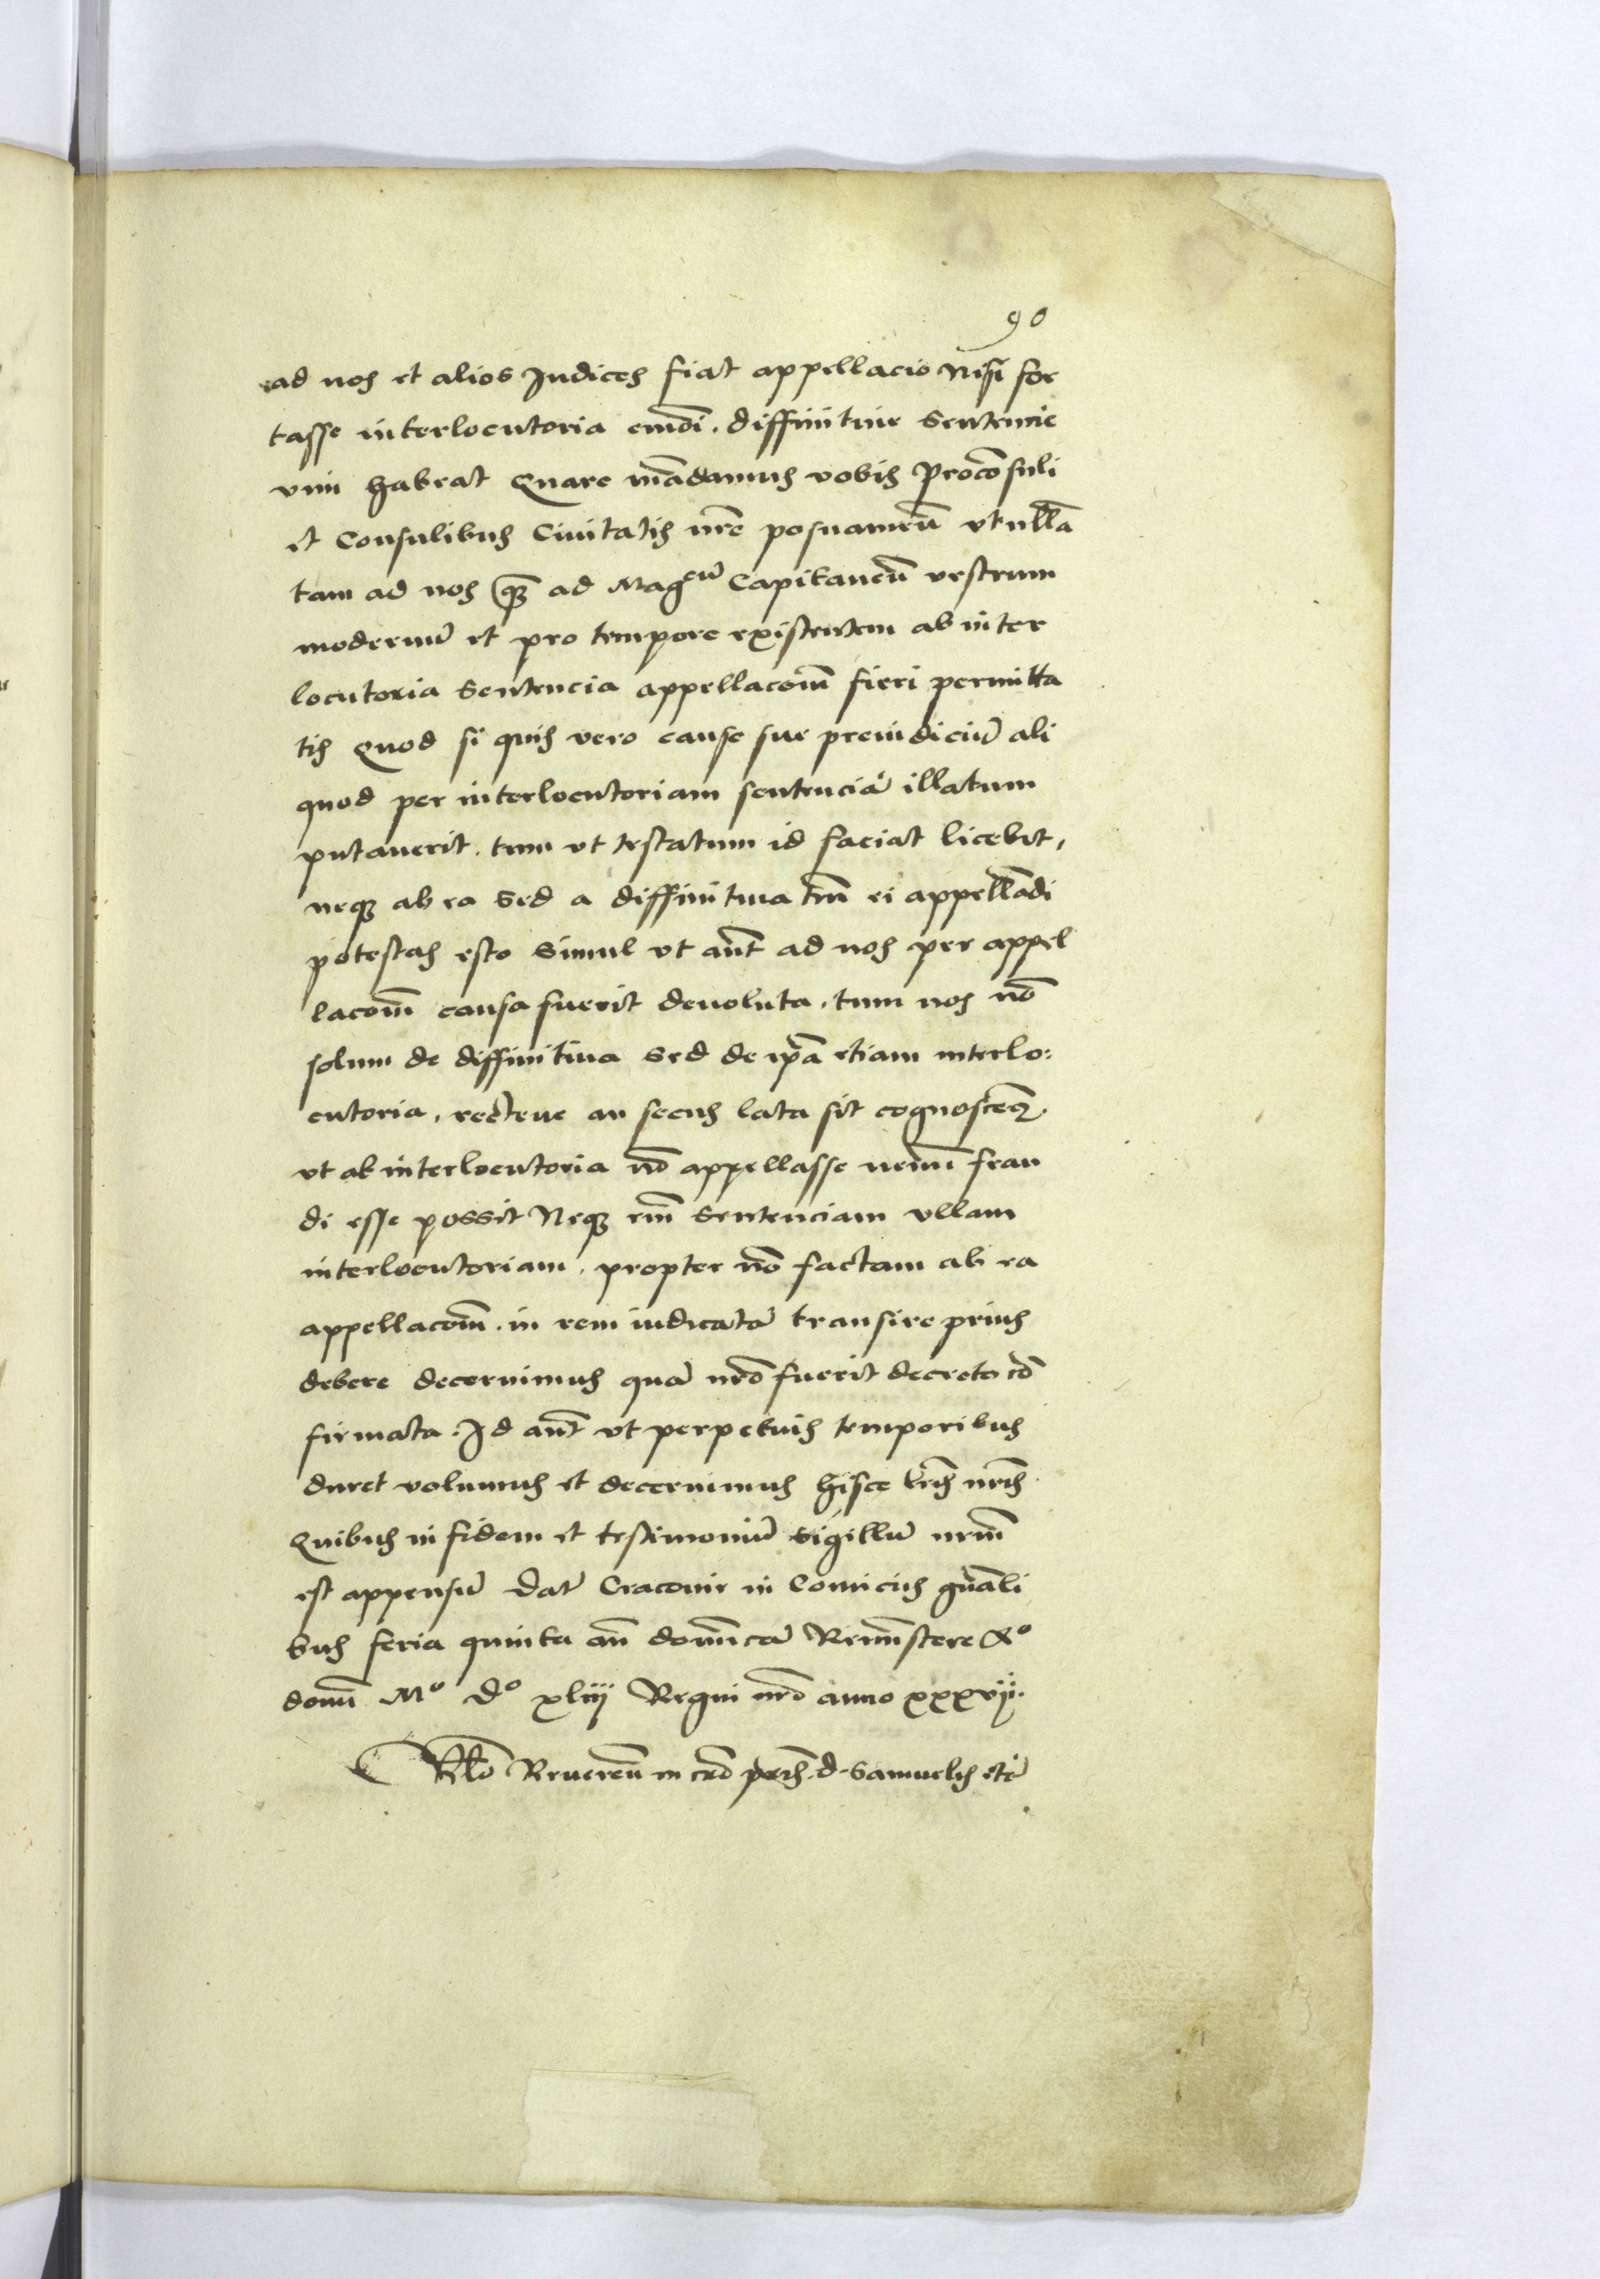 90
ad nos et alios Iudices fiat appellacio Nisi for
tasse interlocutoria emdi. diffinitiue Sentencie
vim habeat Quare mādamus vobis Procōsuli
et Consulibus Ciuitatis nrē posnanieñ vt nullā
tam ad nos q̃ ad Mag<sup>cū</sup> Capitaneū vestrum
modernū et pro tempore existentem ab inter
locutoria Sentencia appellacom̄ fieri permitta
tis Quod si quis vero cause sue preiudiciū ali
quod per interlocutoriam sentenciā illatum
putauerit. tum vt testatum id faciat licebit,
neq₃ ab ea Sed a diffinitiua tm̄ ei appellādi
potestas esto Simul vt aūt ad nos per appel
lacom̄ causa fuerit deuoluta. tum nos nō
solum de diffinitiua Sed de ip̄a etiam interlo:
cutoria, recteue an secus lata sit cognoscem₉.
vt ab interlocutoria nō appellasse nemī frau
di esse possit Neq₃ em̄ Sentenciam vllam
interlocutoriam, propter nō factam ab ea
appellacom̄. in rem iudicatā transire prius
debere decernimus quā nrō fuerit decreto cō
firmata. Id aūt vt perpetuis temporibus
duret volumus et decernimus hisce lrīs nrīs.
Quibus in fidem et testimoniū sigillū nrm̄
est appensū Dat̄ Cracouie in Comicijs gn̄ali
bus feria quinta añ domīcā Remīscere A<sup>o</sup>
domī M<sup>o</sup> D<sup>o</sup> xliij Regni nrī anno xxxvij.
Rlō Reuereñ in crō pr̄is. d. Samuelis etc̄